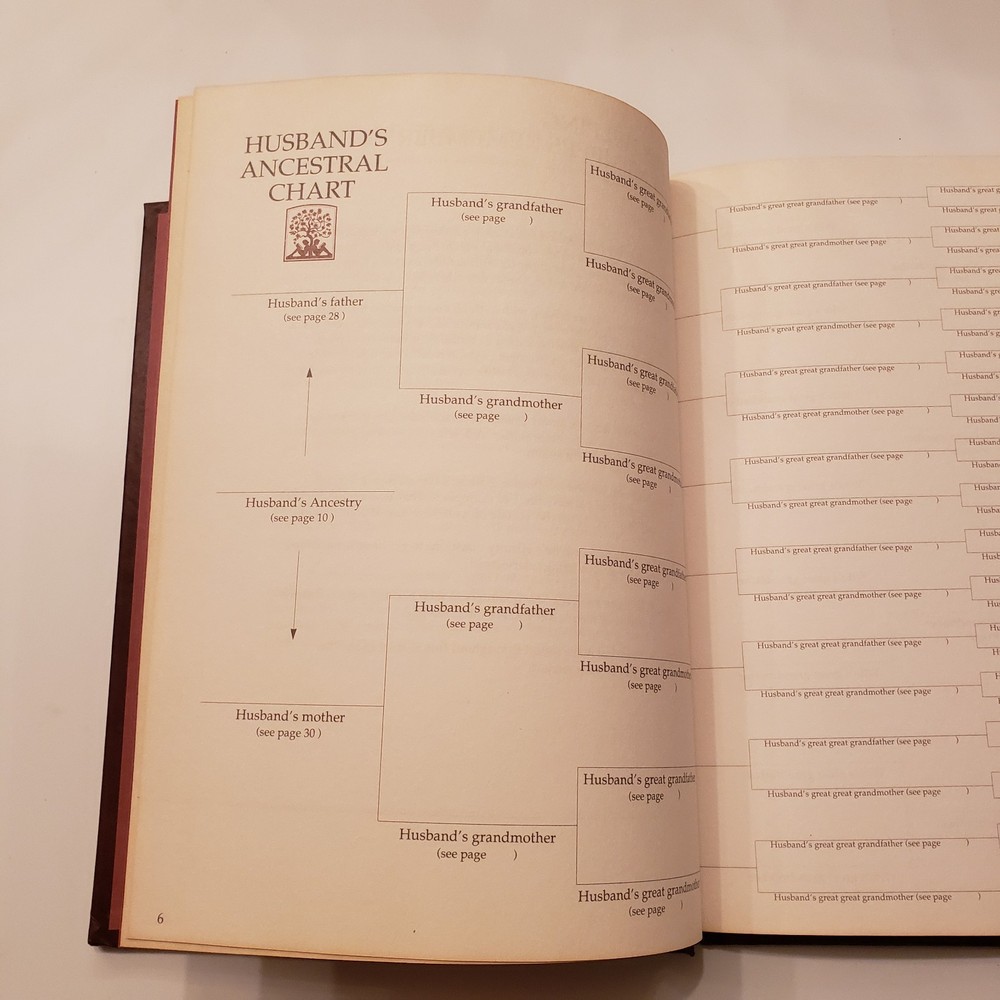 HUSBAND'S
ANCESTRAL
CHART
Husband's father
(see page 28 )
Husband's Ancestry
(see page 10 )
Husband's mother
(see page 30 )
Husband's grandfather
(see page )
Husband's grandmother
(see page )
Husband's grandfather
(see page )
Husband's grandmother
(see page )
Husband's great
(see page
Husband's great
(see page )
Husband's great
(see page )
Husband's great
(see page )
Husband's great grandfather
(see page )
Husband's great grandmother
(see page )
Husband's great grandfather
(see page )
Husband's great grandmother
(see page )
6
Husband's great great grandfather (see page )
Husband's great great grandmother (see page )
Husband's great great grandfather (see page )
Husband's great great grandmother (see page )
Husband's great great grandfather (see page )
Husband's great great grandmother (see page )
Husband's great great grandfather (see page )
Husband's great great grandmother (see page )
Husband's great great grandfather (see page )
Husband's great great grandmother (see page )
Husband's great great grandfather (see page )
Husband's great great grandmother (see page )
Husband's great great grandfather (see page )
Husband's great great grandmother (see page )
Husband's great great grandfather (see page )
Husband's great great grandmother (see page )
Husband's great
Husband's great
Husband's
Husband's
Husband's
Husband's
Husband's
Husband's
Husband's
Husband's
Husband's